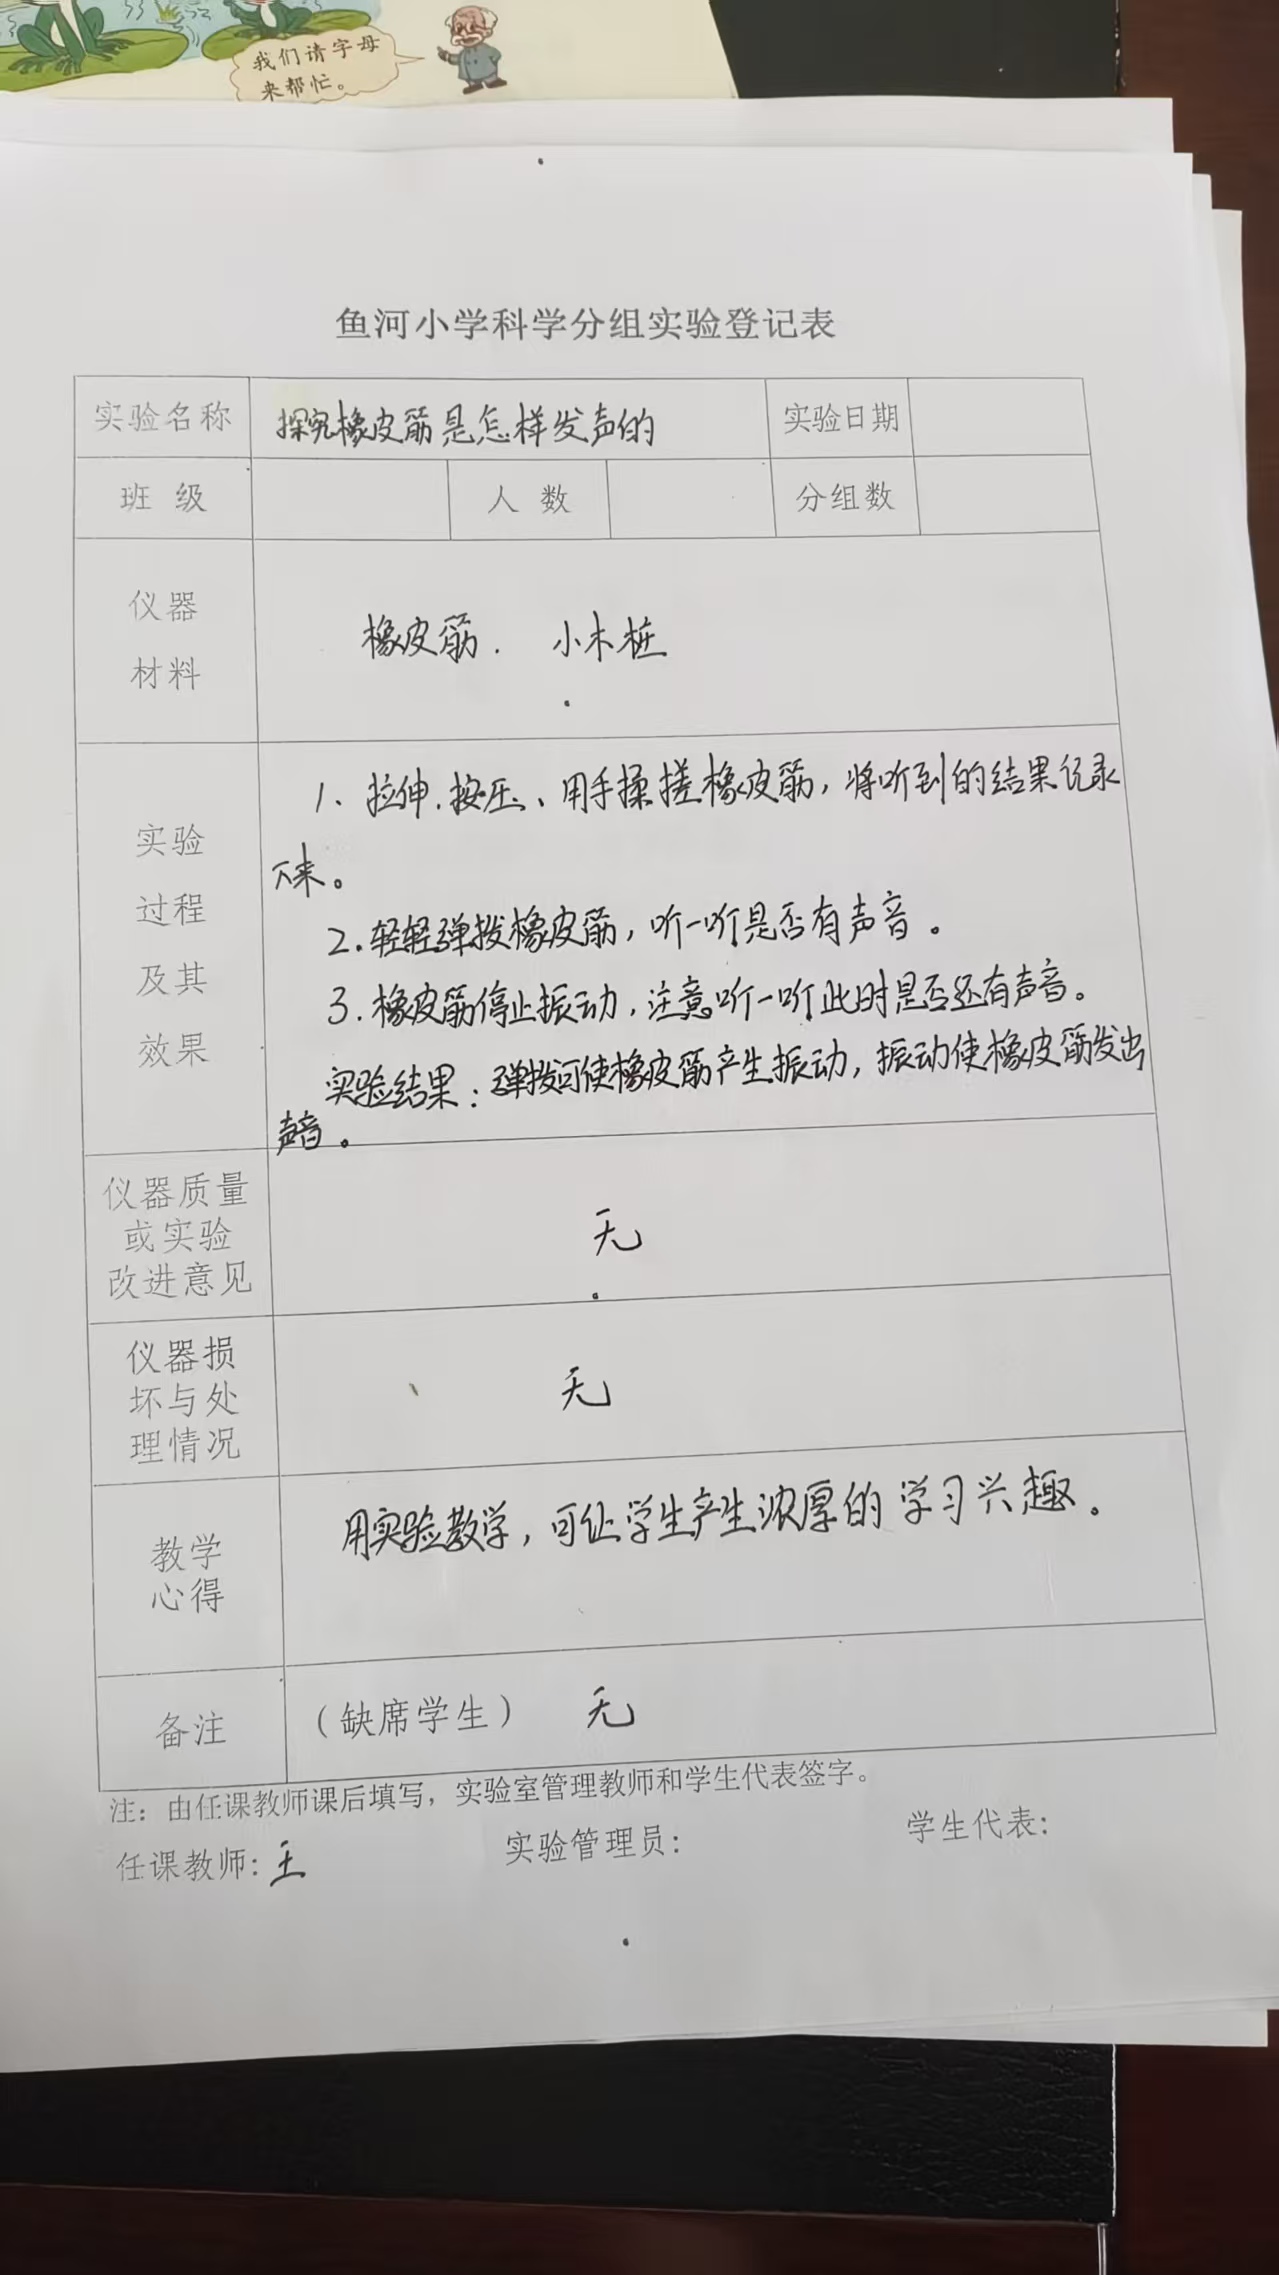 我们请字母
来帮忙。
鱼河小学科学分组实验登记表
实验名称 探究橡皮筋是怎样发声的 实验日期
班 级 人 数 分组数
仪器
材料
橡皮筋. 小木桩
实验
过程
及其
效果
1、拉伸、按压、用手揉搓橡皮筋，将听到的结果记录
下来。
2.轻轻弹拨橡皮筋，听一听是否有声音。
3.橡皮筋停止振动，注意听一听此时是否还有声音。
实验结果：弹拨可使橡皮筋产生振动，振动使橡皮筋发出
声音。
仪器质量
或实验
改进意见
无
仪器损
坏与处
理情况
无
教学
心得
用实验教学，可让学生产生浓厚的学习兴趣。
备注 （缺席学生） 无
注：由任课教师课后填写，实验室管理教师和学生代表签字。
任课教师: 王 实验管理员: 学生代表: